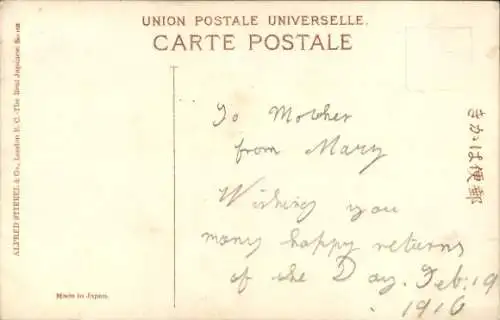 UNION POSTALE UNIVERSELLE.
CARTE POSTALE
ALFRED STIEBEL & Co., London E. C.-The Real Japanese. No
きかは便郵
To Mother
from Mary
Wishing you
many happy returns
of the Day. Feb. 19
1916
Made in Japan.